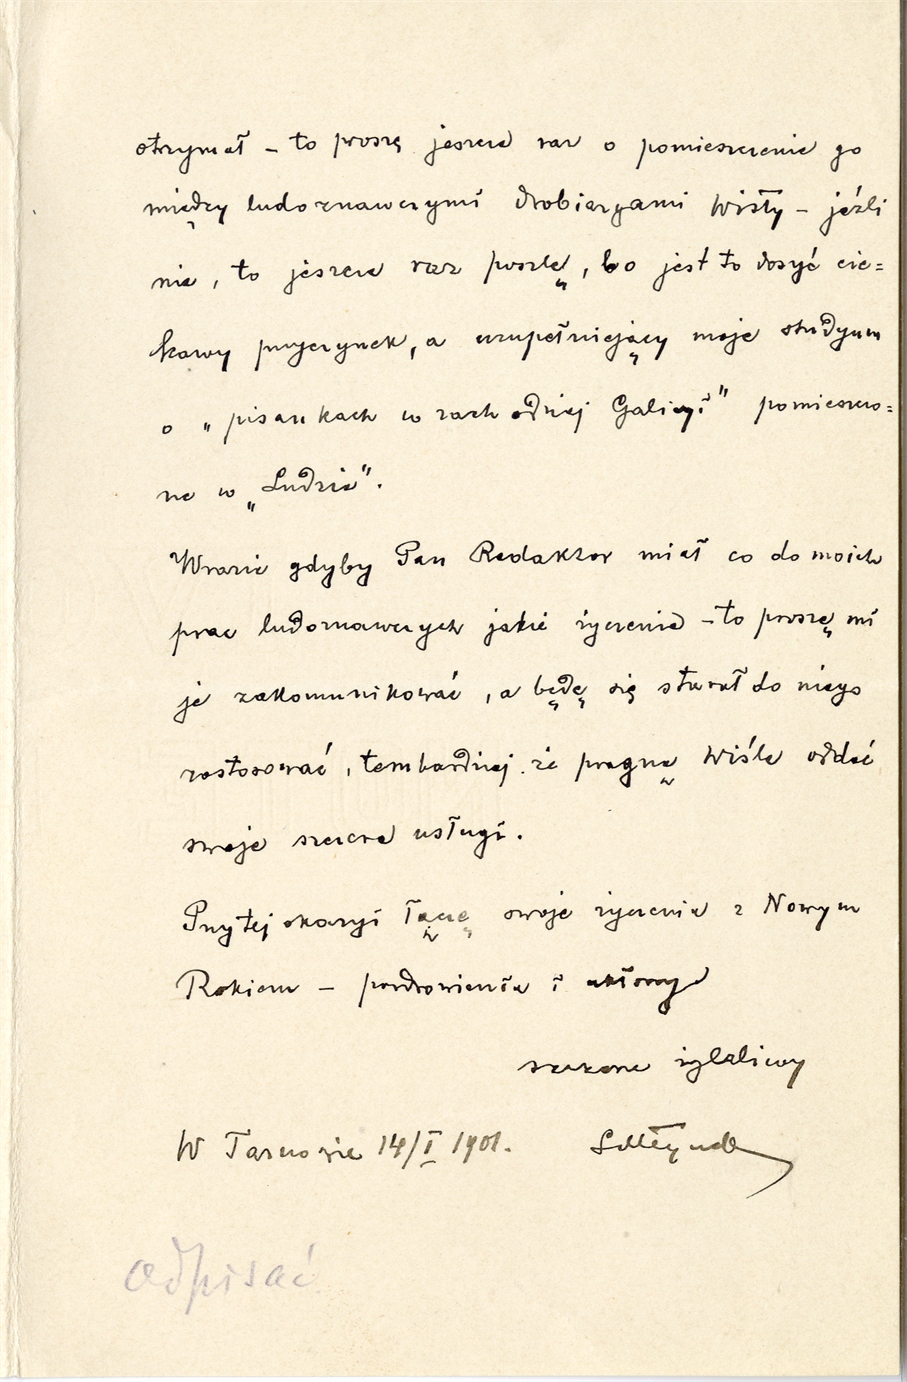 otrzymał – to proszę jeszcze raz o pomieszczenie go
między ludoznawczymi drobiazgami Wisły – jeźli
nie, to jeszcze raz poszlę, bo jest to dosyć cie=
kawy przyczynek, a uzupełniejący moje studyum
o „pisankach w zachodniej Galicyi" pomieszczo=
ne w „Ludzie".
W razie gdyby Pan Redaktor miał co do moich
prac ludoznawczych jakie życzenie – to proszę mi
je zakomunikować, a będę się starał do niego
zastosować, tembardziej że pragnę Wiśle oddać
swoje szczere usługi.
Przy tej okazyi łączę swoje życzenia z Nowym
Rokiem – pozdrowienia i ukłony
szczerze życzliwy
W Tarnowie 14/I 1901.
odpisać